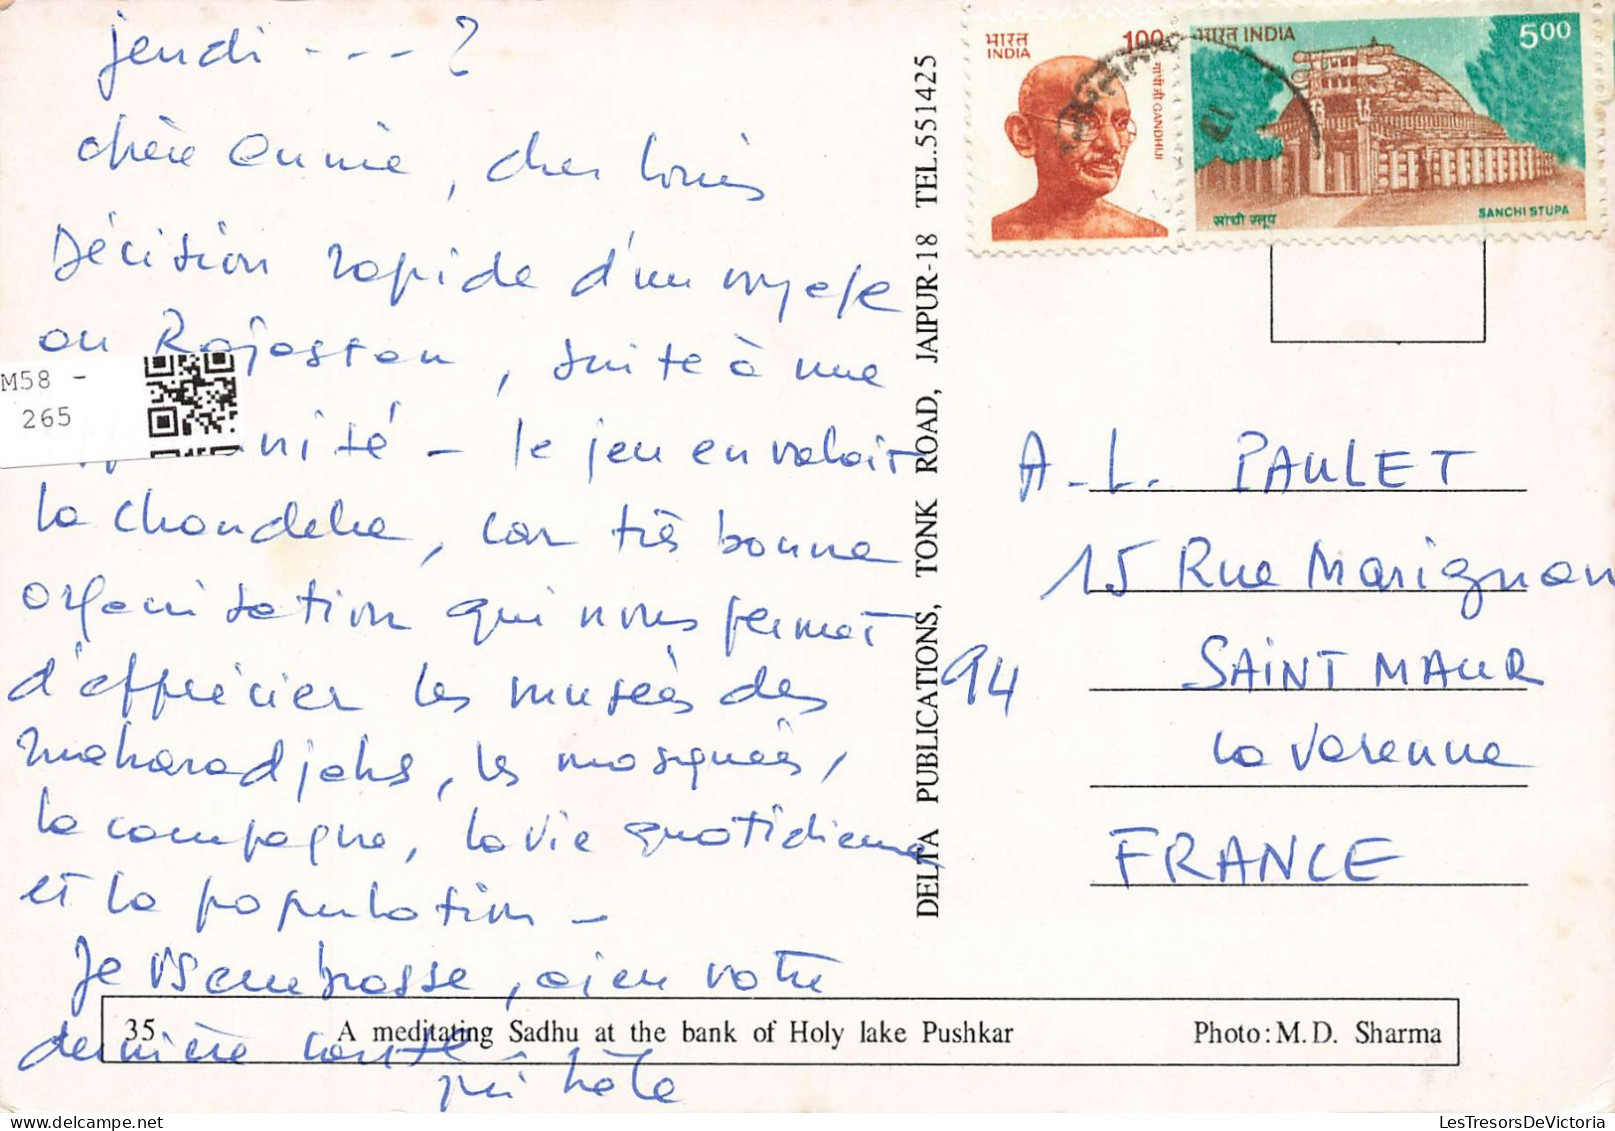 jeudi - - - ?
chère Annie, cher Louis
Décision rapide d'un voyage
au Rajastan, suite à une
nité - le jeu en valait
la chandelle, car très bonne
organisation qui nous permet
d'apprécier les musées des
maharadjahs, les mosquées,
la campagne, la vie quotidienne
et la population -
Je vs embrasse, ai eu votre
dernière carte
M58 -
265
DELTA PUBLICATIONS, TONK ROAD, JAIPUR-18 TEL.551425
भारत
INDIA
100
गांधी जी GANDHIJI
भारत INDIA
5.00
सांची स्तूप
SANCHI STUPA
A.L. PAULET
15 Rue Marignan
94 SAINT MAUR
La Varenne
FRANCE
35 A meditating Sadhu at the bank of Holy lake Pushkar Photo: M.D. Sharma
LesTresorsDeVictoria